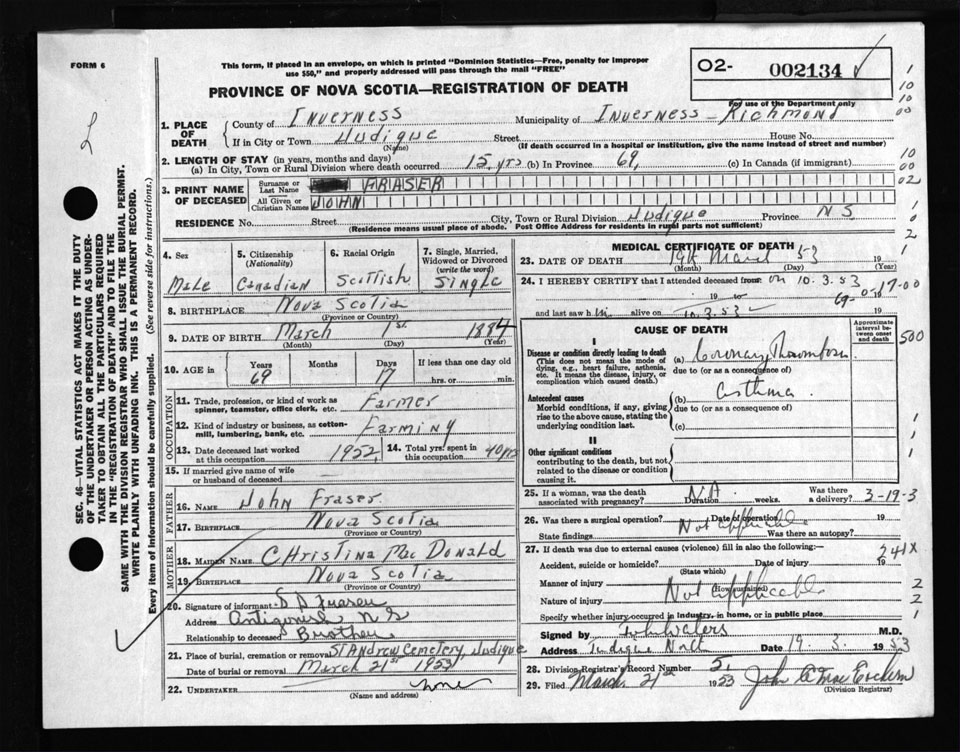 FORM 6
This form, if placed in an envelope, on which is printed "Dominion Statistics—Free, penalty for improper
use $50," and properly addressed will pass through the mail "FREE"
O2- 002134
PROVINCE OF NOVA SCOTIA—REGISTRATION OF DEATH
For use of the Department only
1. PLACE OF DEATH { County of Inverness Municipality of Inverness - Richmond
If in City or Town Judique Street House No.
(Name) (If death occurred in a hospital or institution, give the name instead of street and number)
2. LENGTH OF STAY (in years, months and days)
(a) In City, Town or Rural Division where death occurred 15 yrs (b) In Province 69, (c) In Canada (if immigrant)
3. PRINT NAME OF DECEASED { Surname or Last Name FRASER
All Given or Christian Names JOHN
RESIDENCE No. Street City, Town or Rural Division Judique Province N S
(Residence means usual place of abode. Post Office Address for residents in rural parts not sufficient)
4. Sex Male
5. Citizenship (Nationality) Canadian
6. Racial Origin Scottish
7. Single, Married, Widowed or Divorced (write the word) Single
8. BIRTHPLACE Nova Scotia
(Province or Country)
9. DATE OF BIRTH March 1st 1884
(Month) (Day) (Year)
10. AGE in { Years 69 Months Days 17 If less than one day
hrs. or min.
OCCUPATION
11. Trade, profession, or kind of work as spinner, teamster, office clerk, etc. Farmer
12. Kind of industry or business, as cotton-mill, lumbering, bank, etc. Farming
13. Date deceased last worked at this occupation 1952 14. Total yrs. spent in this occupation 40 yrs
15. If married give name of wife or husband of deceased
FATHER
16. NAME John Fraser
17. BIRTHPLACE Nova Scotia
(Province or Country)
MOTHER
18. MAIDEN NAME Christina Mac Donald
19. BIRTHPLACE Nova Scotia
(Province or Country)
20. Signature of informant D D Fraser
Address Antigonish N S
Relationship to deceased Brother
21. Place of burial, cremation or removal St Andrew Cemetery, Judique
Date of burial or removal March 21st 1953
22. UNDERTAKER none
(Name and address)
MEDICAL CERTIFICATE OF DEATH
23. DATE OF DEATH 19th March 53 19
(Month) (Day) (Year)
24. I HEREBY CERTIFY that I attended deceased from: on 10.3.53
19 to 19
and last saw h im alive on 10.3.53 19
69-0-17-00
CAUSE OF DEATH
Approximate interval between onset and death
I
Disease or condition directly leading to death (a) Coronary Thrombosis
(This does not mean the mode of dying, e.g., heart failure, asthenia, etc. It means the disease, injury, or complication which caused death.)
due to (or as a consequence of)
Antecedent causes (b) Asthma
Morbid conditions, if any, giving rise to the above cause, stating the underlying condition last.
due to (or as a consequence of)
(c)
II
Other significant conditions
contributing to the death, but not related to the disease or condition causing it.
25. If a woman, was the death associated with pregnancy? N.A. Duration weeks. Was there a delivery? 3-19-3
26. Was there a surgical operation? Date of operation 19
State findings Not applicable Was there an autopsy?
27. If death was due to external causes (violence) fill in also the following:— 241X
Accident, suicide or homicide? Date of injury 19
(State which)
Manner of injury (How sustained)
Nature of injury Not applicable
Specify whether injury occurred in industry, in home, or in public place
Signed by M.D.
Address Judique North Date 19. 3. 1953
28. Division Registrar's Record Number 5.
29. Filed March 21st 1953 John A Mac Eachern
(Division Registrar)
SEC. 46—VITAL STATISTICS ACT MAKES IT THE DUTY
OF THE UNDERTAKER OR PERSON ACTING AS UNDER-
TAKER TO OBTAIN ALL THE PARTICULARS REQUIRED
IN THE "REGISTRATION OF DEATH" AND TO FILE THE
SAME WITH THE DIVISION REGISTRAR WHO SHALL ISSUE THE BURIAL PERMIT.
WRITE PLAINLY WITH UNFADING INK. THIS IS A PERMANENT RECORD.
Every item of Information should be carefully supplied. (See reverse side for instructions.)
1
10
10
00
10
00
02
1
0
2
1
500
1
1
1
2
2
1